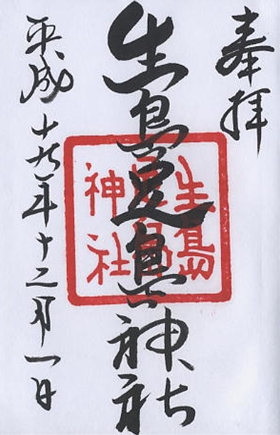 奉拝
生島足島神社
生島
足島
神社
平成十九年十二月一日